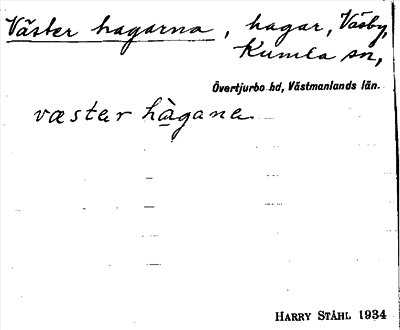 Väster hagarna, hagar, Väsby,
Kumla sn,
Övertjurbo hd, Västmanlands län.
væstar hàgana
HARRY STÅHL 1934